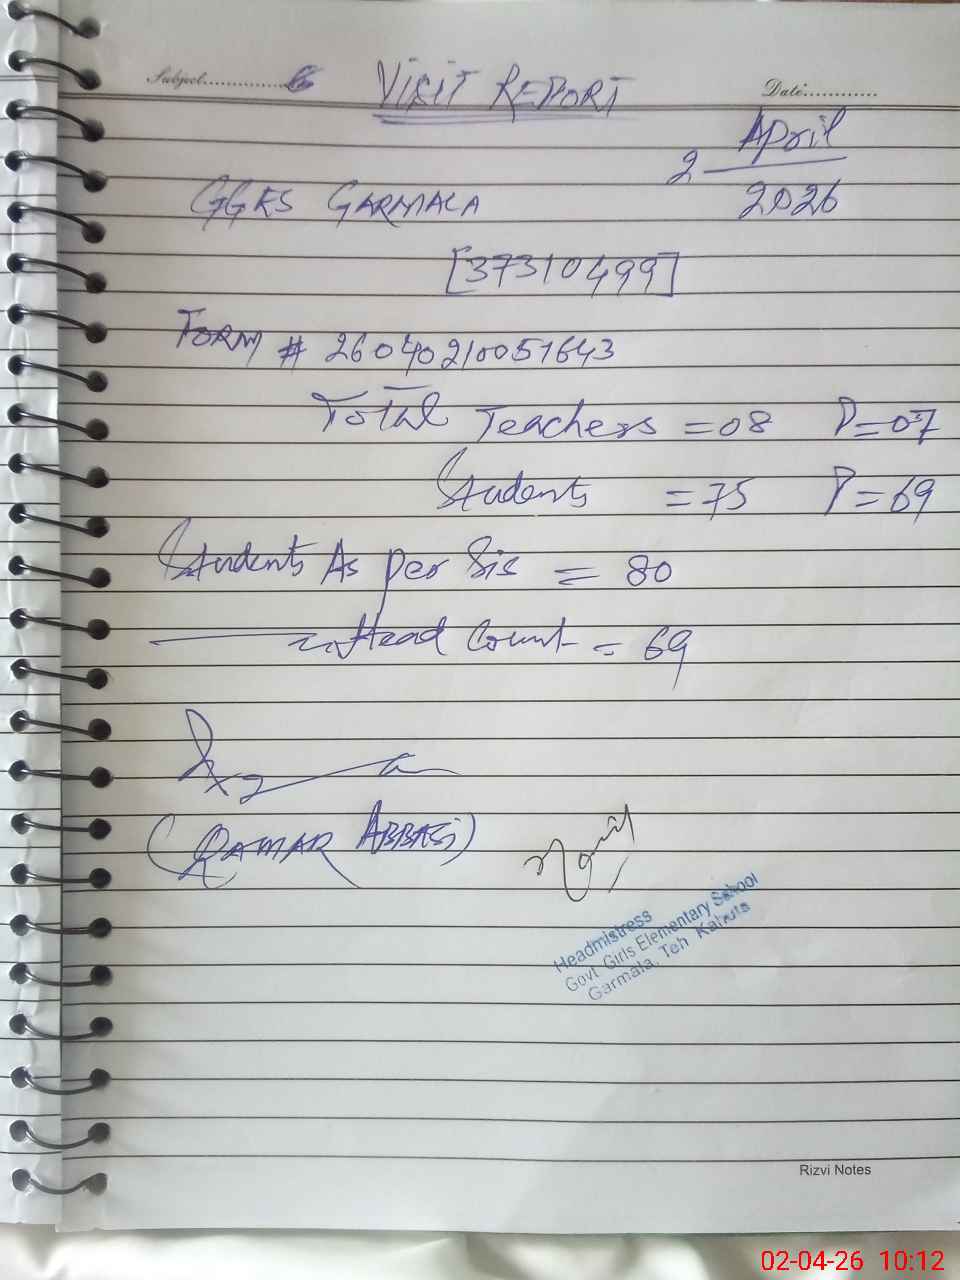 Subject..............
VISIT REPORT
Date............
2 April
2026
GGES GARMALA
[37310499]
FORM # 26040210051643
Total Teachers = 08 P=07
Students = 75 P=69
Students As per Sis = 80
Head Count = 69
(QAMAR ABBASI)
Headmistress
Govt Girls Elementary School
Garmala, Teh Kahuta
Rizvi Notes
02-04-26 10:12